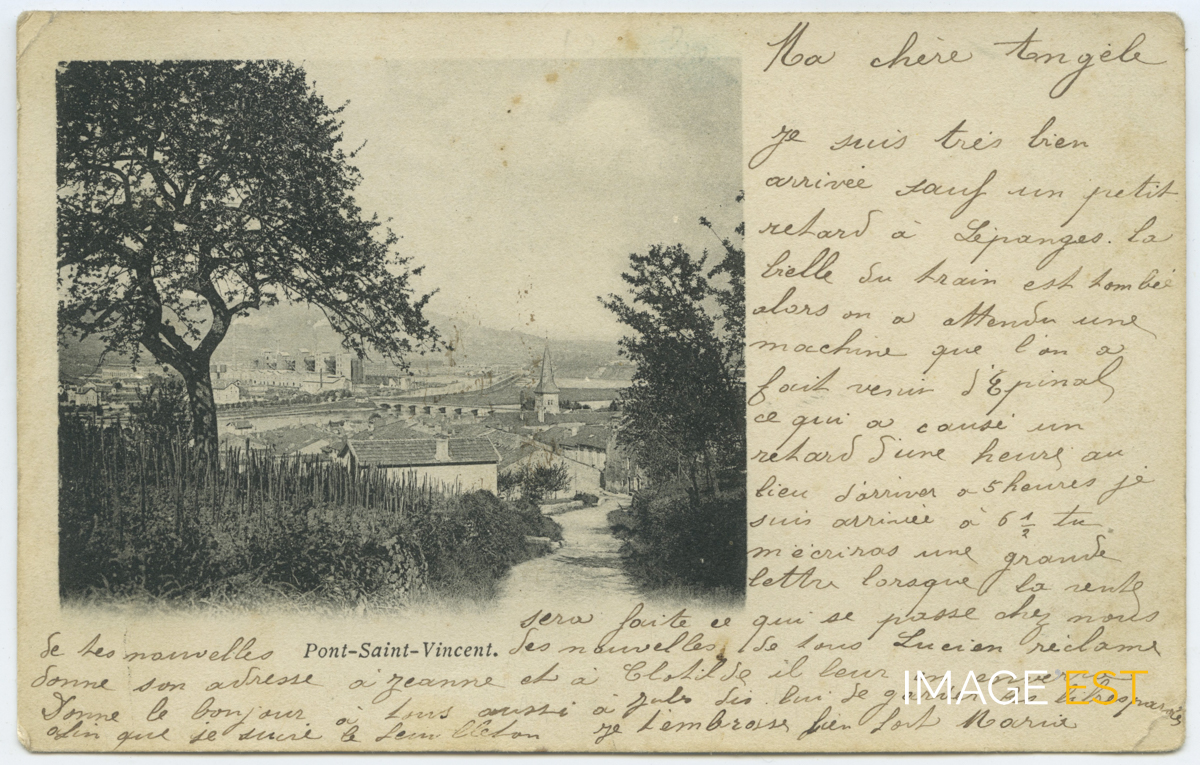 Ma chère Angèle
Je suis très bien
arrivée sauf un petit
retard à Lépanges. la
bielle du train est tombée
alors on a attendu une
machine que l'on a
fait venir d'Epinal
ce qui a causé un
retard d'une heure, au
lieu d'arriver à 5 heures je
suis arrivée à 6 1/2 tu
m'écriras une grande
lettre lorsque la vente
sera faite ce qui se passe chez nous
Pont-Saint-Vincent.
des nouvelles de tous Lucien réclame
de tes nouvelles
donne son adresse à Jeanne et à Clotilde il leur
Donne le bonjour à tous aussi à Jules dis lui de
afin que je suive le feuilleton je t'embrasse bien fort Maria
IMAGE EST